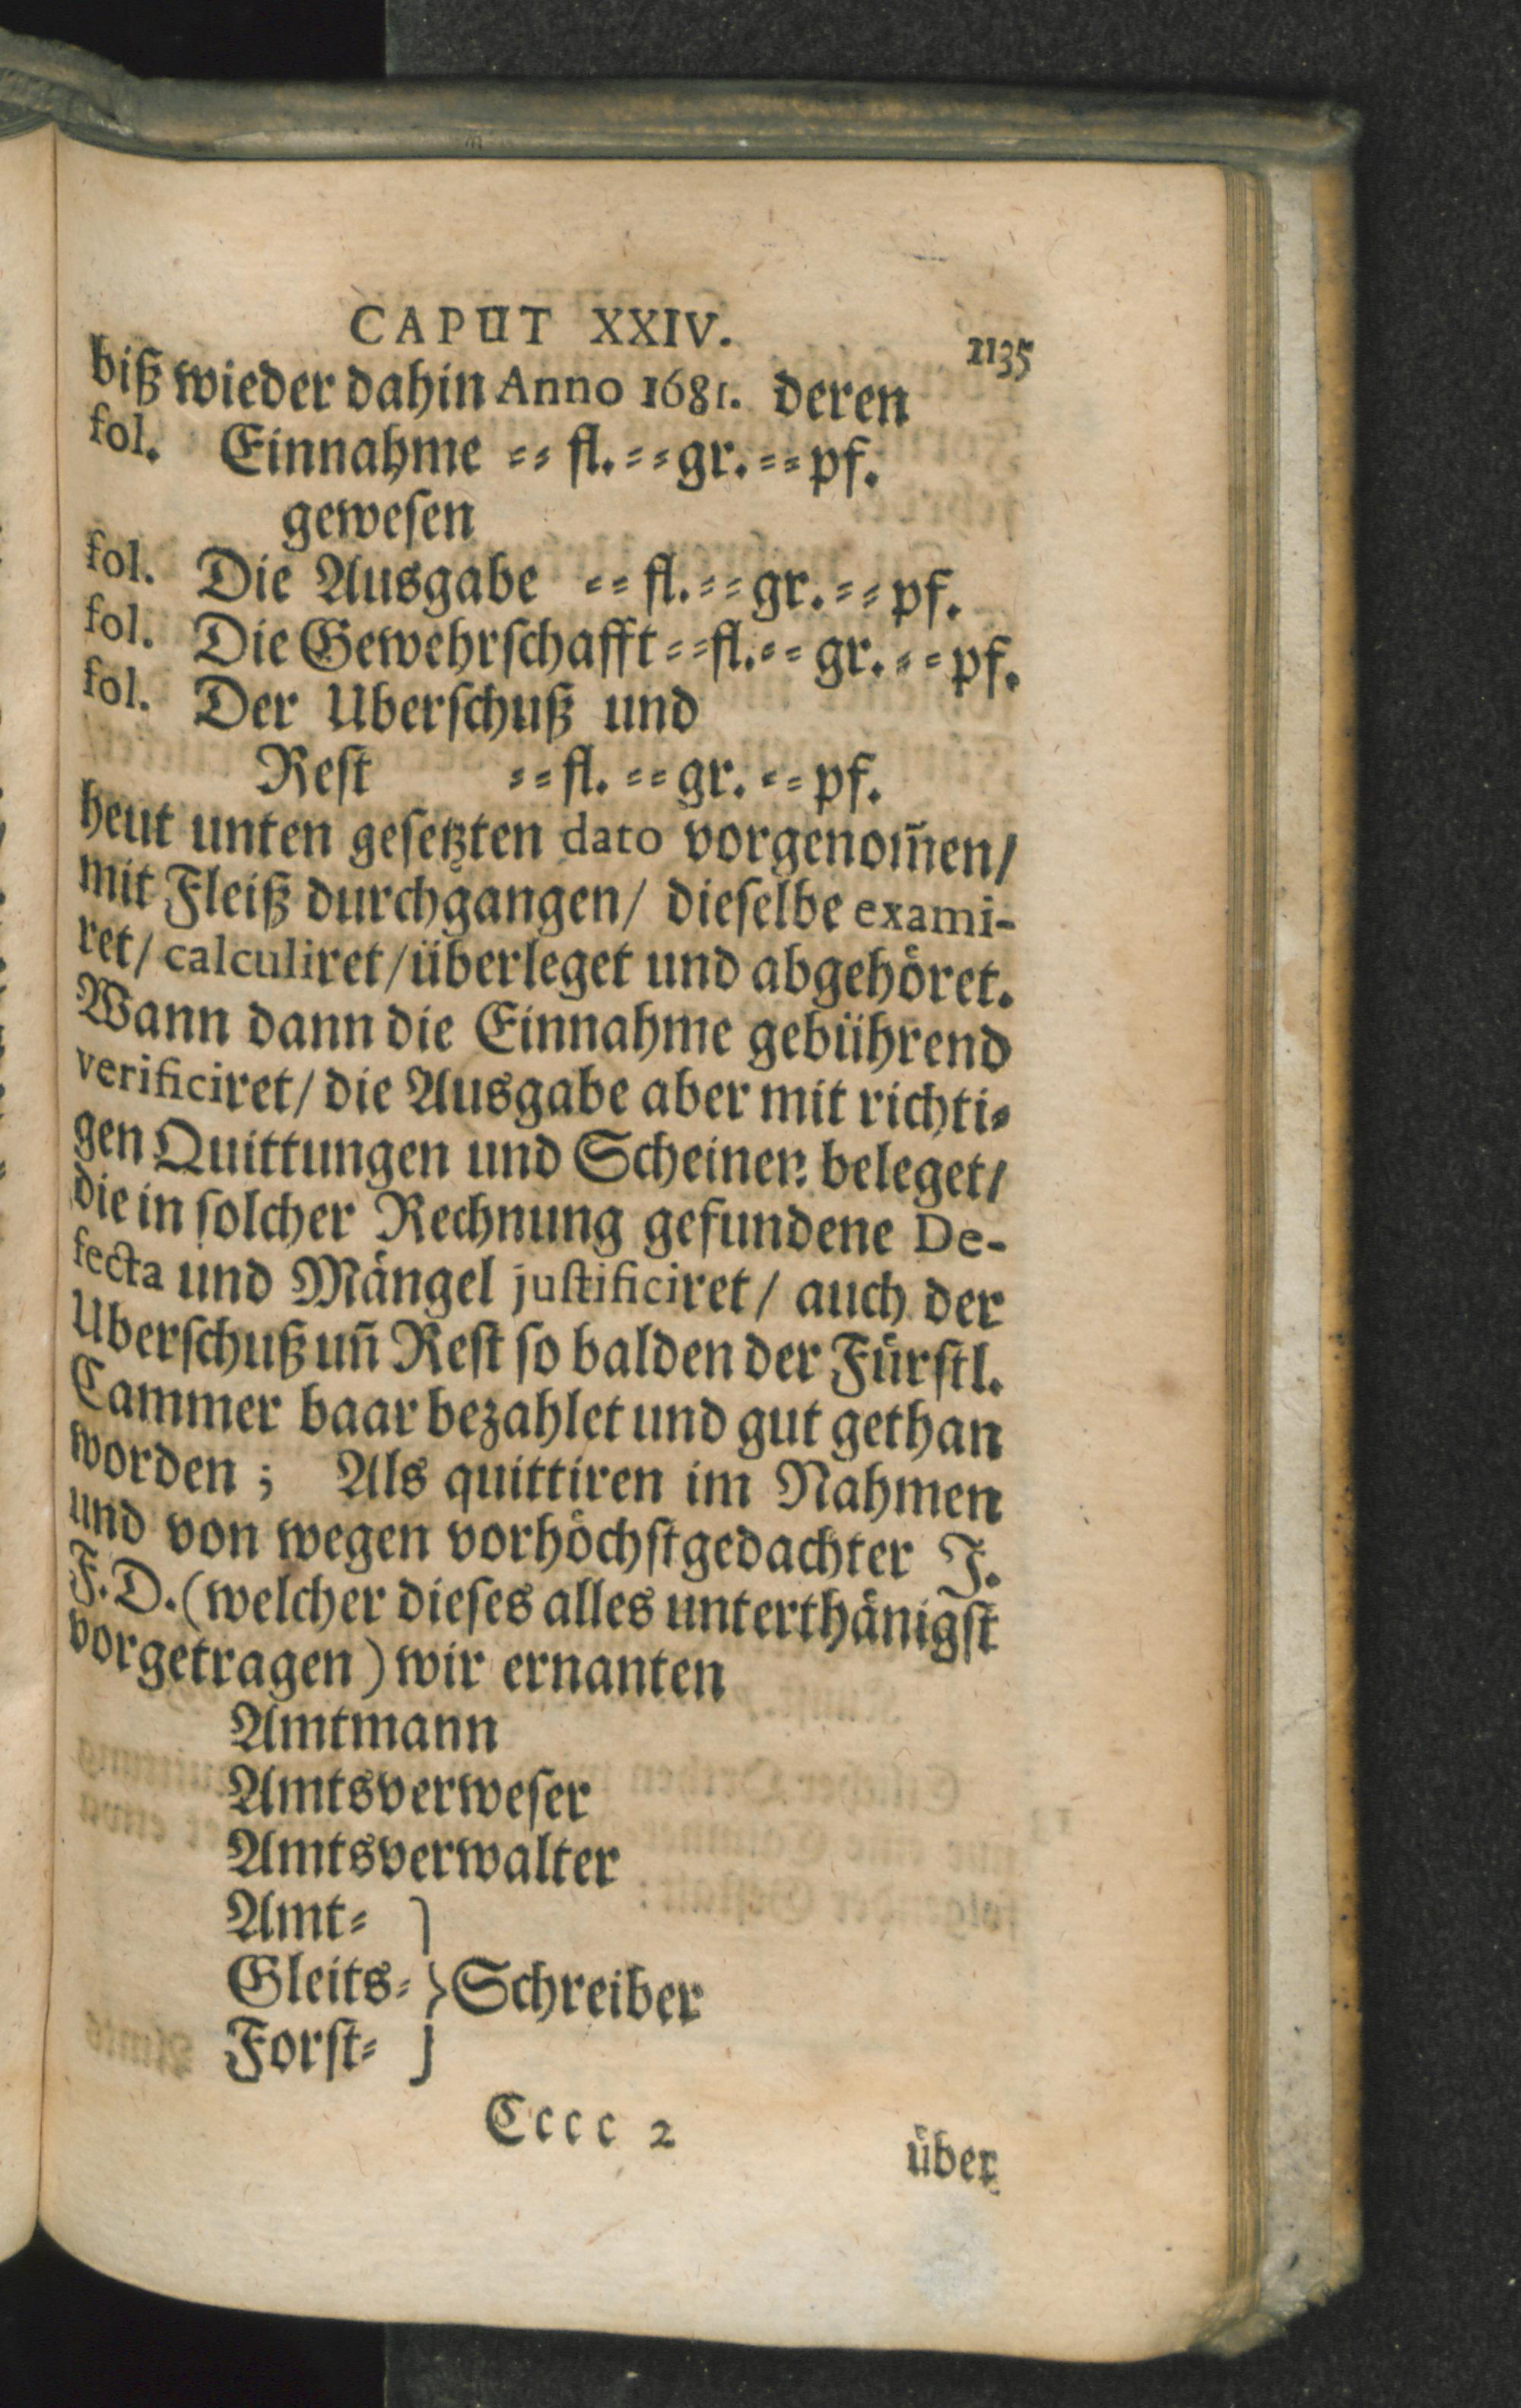 CAPUT XXIV. 1135
biß wieder dahin Anno 1681. deren
fol. Einnahme ⸗⸗ fl. ⸗⸗ gr. ⸗⸗ pf.
geweſen
fol. Die Ausgabe ⸗⸗ fl. ⸗⸗ gr. ⸗⸗ pf.
fol. Die Gewehrſchafft ⸗⸗ fl. ⸗⸗ gr. ⸗⸗ pf.
fol. Der Uberſchuß und
Reſt ⸗⸗ fl. ⸗⸗ gr. ⸗⸗ pf.
heut unten geſetzten dato vorgenom̃en/
mit Fleiß durchgangen/ dieſelbe exami-
ret/ calculiret/ überleget und abgehöret.
Wann dann die Einnahme gebührend
verificiret/ die Ausgabe aber mit richti⸗
gen Quittungen und Scheinen beleget/
die in ſolcher Rechnung gefundene De-
fecta und Mängel juſtificiret/ auch der
Uberſchuß uñ Reſt ſo balden der Fürſtl.
Cammer baar bezahlet und gut gethan
worden; Als quittiren im Nahmen
und von wegen vorhöchſtgedachter J.
F. D. (welcher dieſes alles unterthänigſt
vorgetragen) wir ernanten
Amtmann
Amtsverweſer
Amtsverwalter
Amt⸗
Gleits⸗ } Schreiber
Forſt⸗
Cccc 2
über